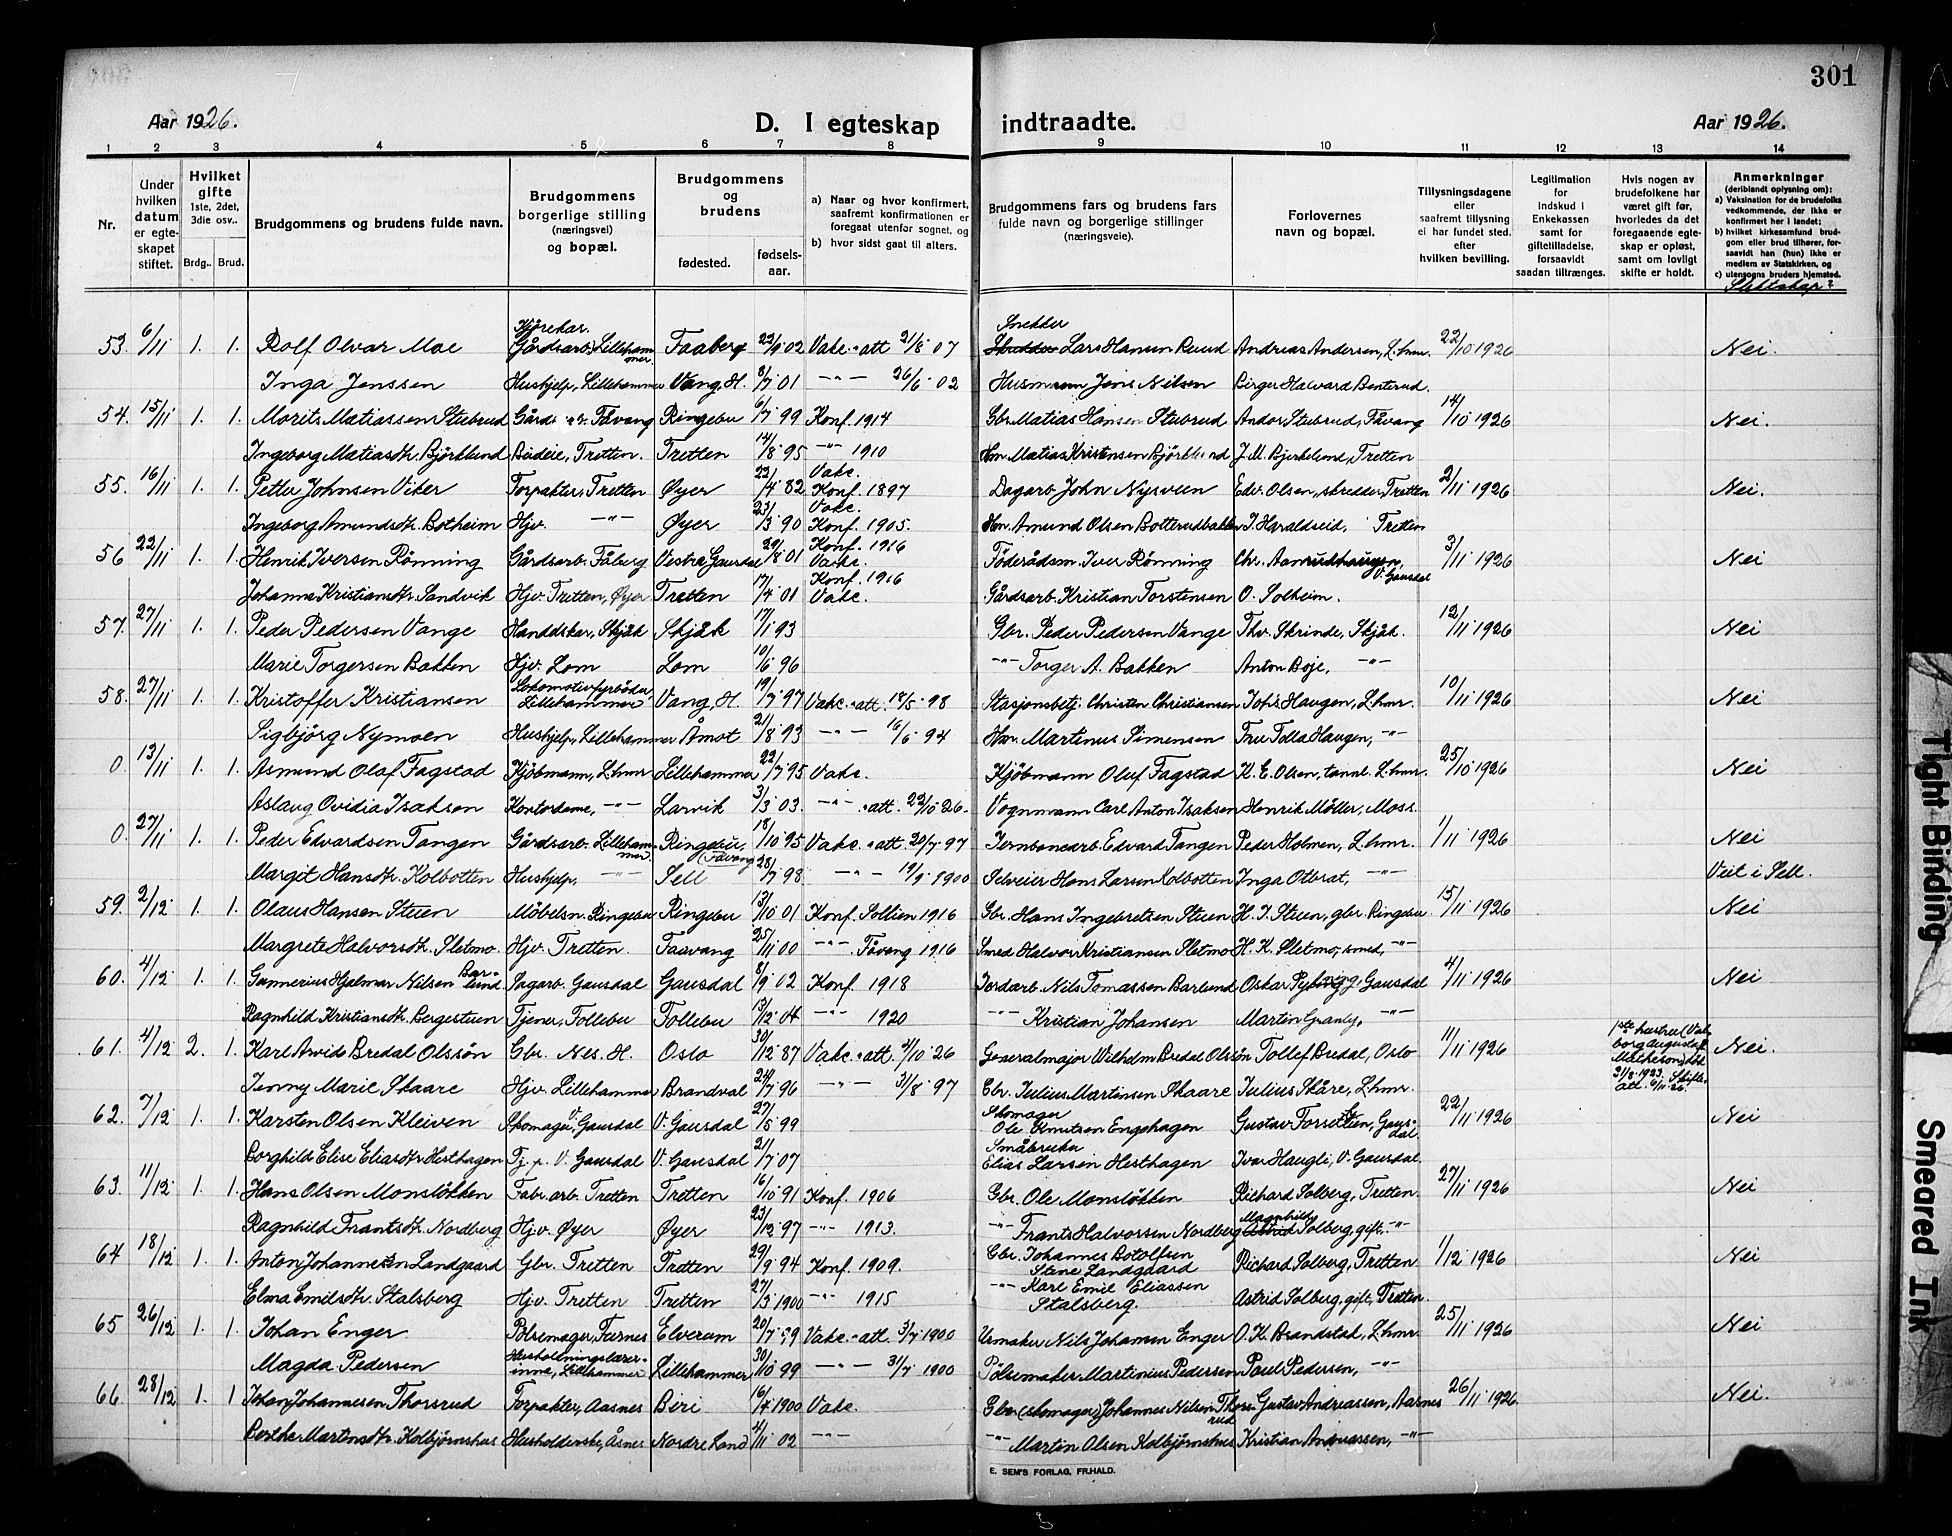 301
Aar 1926. D. I egteskap indtraadte. Aar 1926.
1 2 3 4 5 6 7 8 9 10 11 12 13 14
Nr.
Under hvilken datum er egteskapet stiftet.
Hvilket gifte 1ste, 2det, 3die osv..
Brdg.. Brud.
Brudgommens og brudens fulde navn.
Brudgommens borgerlige stilling (næringsvei) og bopæl.
Brudgommens og brudens
fødested. fødselsaar.
a) Naar og hvor konfirmert, saafremt konfirmationen er foregaat utenfor sognet, og
b) hvor sidst gaat til alters.
Brudgommens fars og brudens fars fulde navn og borgerlige stillinger (næringsveie).
Forlovernes navn og bopæl.
Tillysningsdagene eller saafremt tillysning ei har fundet sted. efter hvilken bevilling.
Legitimation for indskud i Enkekassen samt for giftetilladelse, forsaavidt saadan tiltrænges.
Hvis nogen av brudefolkene har været gift før, hvorledes da det foregaaende egteskap er opløst, samt om lovligt skifte er holdt.
Anmerkninger (deriblandt oplysning om):
a) Vaksination for de brudefolks vedkommende, der ikke er konfirmert her i landet;
b) hvilket kirkesamfund brudgom eller brud tilhører, forsaavidt han (hun) ikke er medlem av Statskirken, og
c) utensogns bruders hjemsted.
Slektskap?
53. 6/11 1. 1. Rolf Olvar Moe Kjørekar. Gårdsarb. Lillehammer Faaberg 22/9 02 Vakc. att 21/8 07 Snekker Lars Hansen Ruud Andreas Andersen, L.hmr. 22/10 1926 Nei.
Inga Jenssen Hushjelp, Lillehammer Vang, H. 8/7 01 -"- 26/6 02 Husmann Jens Nilsen Birger Halvard Bentrud.
54. 15/11 1. 1. Morits Matiassen Stubrud Gårdsarb. Fåvang Ringebu 6/7 99 Konf. 1914 Gbr. Matias Hansen Stubrud Andor Stubrud, Fåvang 14/10 1926 Nei.
Ingeborg Matiasdtr. Björklund Budeie, Tretten. Tretten 14/8 95 -"- 1910 Hm. Matias Kristensen Björklund J. M. Bjerkelund, Tretten
55. 16/11 1. 1. Petter Johnsen Viker Forpakter, Tretten Øyer 22/4 82 Vakc. Konf. 1897 Dagarb. John Nysveen Edv. Olsen, skredder, Tretten 2/11 1926 Nei.
Ingeborg Amundsdtr. Botheim Hjv. -"- Øyer 23/3 90 Vakc. Konf. 1905. Hm. Amund Olsen Botterudbakken J. Haraldseid, Tretten
56 22/11 1. 1. Henrik Iversen Rönning Gårdsarb. Fåberg Vestre Gausdal 29/8 01 Konf. 1916 Vakc. Föderådsm. Iver Rönning Chr. Aamrudhaugen, V. Gausdal 3/11 1926 Nei
Johanna Kristiansdtr. Sandvik Hjv. Tretten, Øyer Tretten 17/4 01 Konf. 1916 Vakc. Gårdsarb. Kristian Torstensen O. Solheim.
57. 27/11 1. 1. Peder Pedersen Vange Handelskar, Skjåk Skjåk 17/1 93 Gbr. Peder Pedersen Vange Thv. Skrinde, Skjåk. 12/11 1926 Nei
Marie Torgersen Bakken Hjv. Lom Lom 10/6 96 -"- Torger A. Bakken Anton Böje, -"-
58. 27/11 1. 1. Kristoffer Kristiansen Lokomotivfyrböder, Lillehammer Vang, H. 19/7 97 Vakc. att. 18/5 98 Stasjonsbetj. Christen Christiansen Johs. Haugen, L.hmr. 10/11 1926 Nei
Sigbjörg Nymoen Hushjelp, Lillehammer Åmot 21/8 93 -"- 16/6 94 Hm. Martinus Simensen Fru Tolla Haugen, -"-
0. 13/11 1. 1. Asmund Olaf Fagstad Kjöbmann, L.hmr Lillehammer 22/7 95 Vakc. Kjöbmann Oluf Fagstad K. E. Olsen, tannl. L.hmr. 25/10 1926 Nei
Aslaug Ovidia Isaksen Kontordame, -"- Larvik 3/3 03. -"- att. 22/10 26. Vognmann Carl Anton Isaksen Henrik Möller, Moss.
0. 27/11 1. 1. Peder Edvardsen Tangen Gårdsarb. Lillehammer Ringebu, (Fåvang) 18/10 95 Vakc. att 20/7 97 Jernbanearb. Edvard Tangen Peder Holmen, L.hmr. 1/11 1926 Nei
Margit Hansdtr. Kolbotten Hushjelp, -"- Sell 28/7 98 -"- 19/9 1900 Selveier Hans Larsen Kolbotten Inga Otbrat, -"- Viel i Sell.
59. 2/12 1. 1. Olaus Hansen Stuen Möbelsn. Ringebu Ringebu 13/10 01 Konf. Sollien 1916 Gbr. Hans Ingebretsen Stuen H. I. Stuen, gbr. Ringebu 15/11 1926 Nei
Margrete Halvorsdtr. Sletmo. Hjv. Tretten Faavang 25/11 00 -"- Fåvang 1916 Smed Halvor Kristiansen Sletmo H. K. Sletmo, smed, -"-
60. 4/12 1. 1. Gunnerius Hjalmar Nilsen Barlund Sagarb. Gausdal Gausdal 8/9 02 Konf. 1918 Jordarb. Nils Tomassen Barlund Oskar Nyborg, Gausdal 4/11 1926 Nei
Ragnhild Kristiansdtr. Bergestuen Tjener, Follebu Follebu 13/12 04 -"- 1920 -"- Kristian Johansen Martin Granly, -"-
61. 4/12 2. 1 Karl Arvid Bredal Olssön Gbr. Nes. H. Oslo 30/12 87 Vakc. att. 4/10 26 Generalmajor Wilhelm Bredal Olssön Tollef Bredal, Oslo 11/11 1926 1ste hustru (Valborg Augusta f. Matheson) död 21/8 1923. Skifteatt. 6/11 26. Nei.
Jenny Marie Skaare Hjv. Lillehammer Brandval 24/7 96 -"- 31/8 97 Gbr. Julius Martinsen Skaare Julius Skåre, L.hmr.
62. 7/12 1. 1. Karsten Olsen Kleiven Skomager, V. Gausdal V. Gausdal 27/5 99 Skomager Ole Knutsen Engehagen Gustav Forsetlien, Gausdal 22/11 1926 Nei
Borghild Elise Eliasdtr. Hesthagen Tj. p. V. Gausdal V. Gausdal 21/7 07 Småbruker Elias Larsen Hesthagen Ivar Haugli, V. Gausdal.
63. 11/12 1. 1. Hans Olsen Monslökken Fabr. arb. Tretten Tretten 16/10 91 Konf. 1906 Gbr. Ole Monslökken Richard Solberg, Tretten. 27/11 1926 Nei
Ragnhild Frantsdtr. Nordberg Hjv. Øyer Øyer 23/12 97 -"- 1913. -"- Frants Halvorsen Nordberg Magnhild Solberg, gift. -"-
64 18/12 1. 1. Anton Johannesen Landgaard Gbr. Tretten Tretten 29/9 94 Konf. 1909. Gbr. Johannes Botolfsen Stene Landgaard Richard Solberg, Tretten 1/12 1926 Nei
Elma Emilsdtr. Stalsberg Hjv. Tretten Tretten 27/3 1900 -"- 1915 -"- Karl Emil Eliassen Stalsberg. Astrid Solberg, gift, Tretten.
65 26/12 1. 1. Johan Enger Pölsemager, Furnes Elverum 20/7 99 Vakc. att. 3/7 1900 Urmaker Nils Johansen Enger O. K. Brandstad, L.hmr. 25/11 1926 Nei
Magda Pedersen Husholdningslærerinne, Lillehammer Lillehammer 30/10 99 -"- 31/7 1900 Pölsemaker Martinius Pedersen Paul Pedersen, -"-
66 28/12 1. 1 Johan Johannesen Thorsrud Forpakter, Aasnes Biri 16/4 1900 Vakc. Gbr. (skomager) Johannes Nilsen Thorsrud Gustav Andreassen, Aasnes 26/11 1926. Nei.
Berthe Martinsdtr. Kolbjørnshus Husholderske, Åsnes Nordre Land 4/11 02 -"- -"- Martin Olsen Kolbjørnshus Kristian Andreassen, -"-
E. SEM'S FORLAG, FR.HALD.
Tight Binding
Smeared Ink